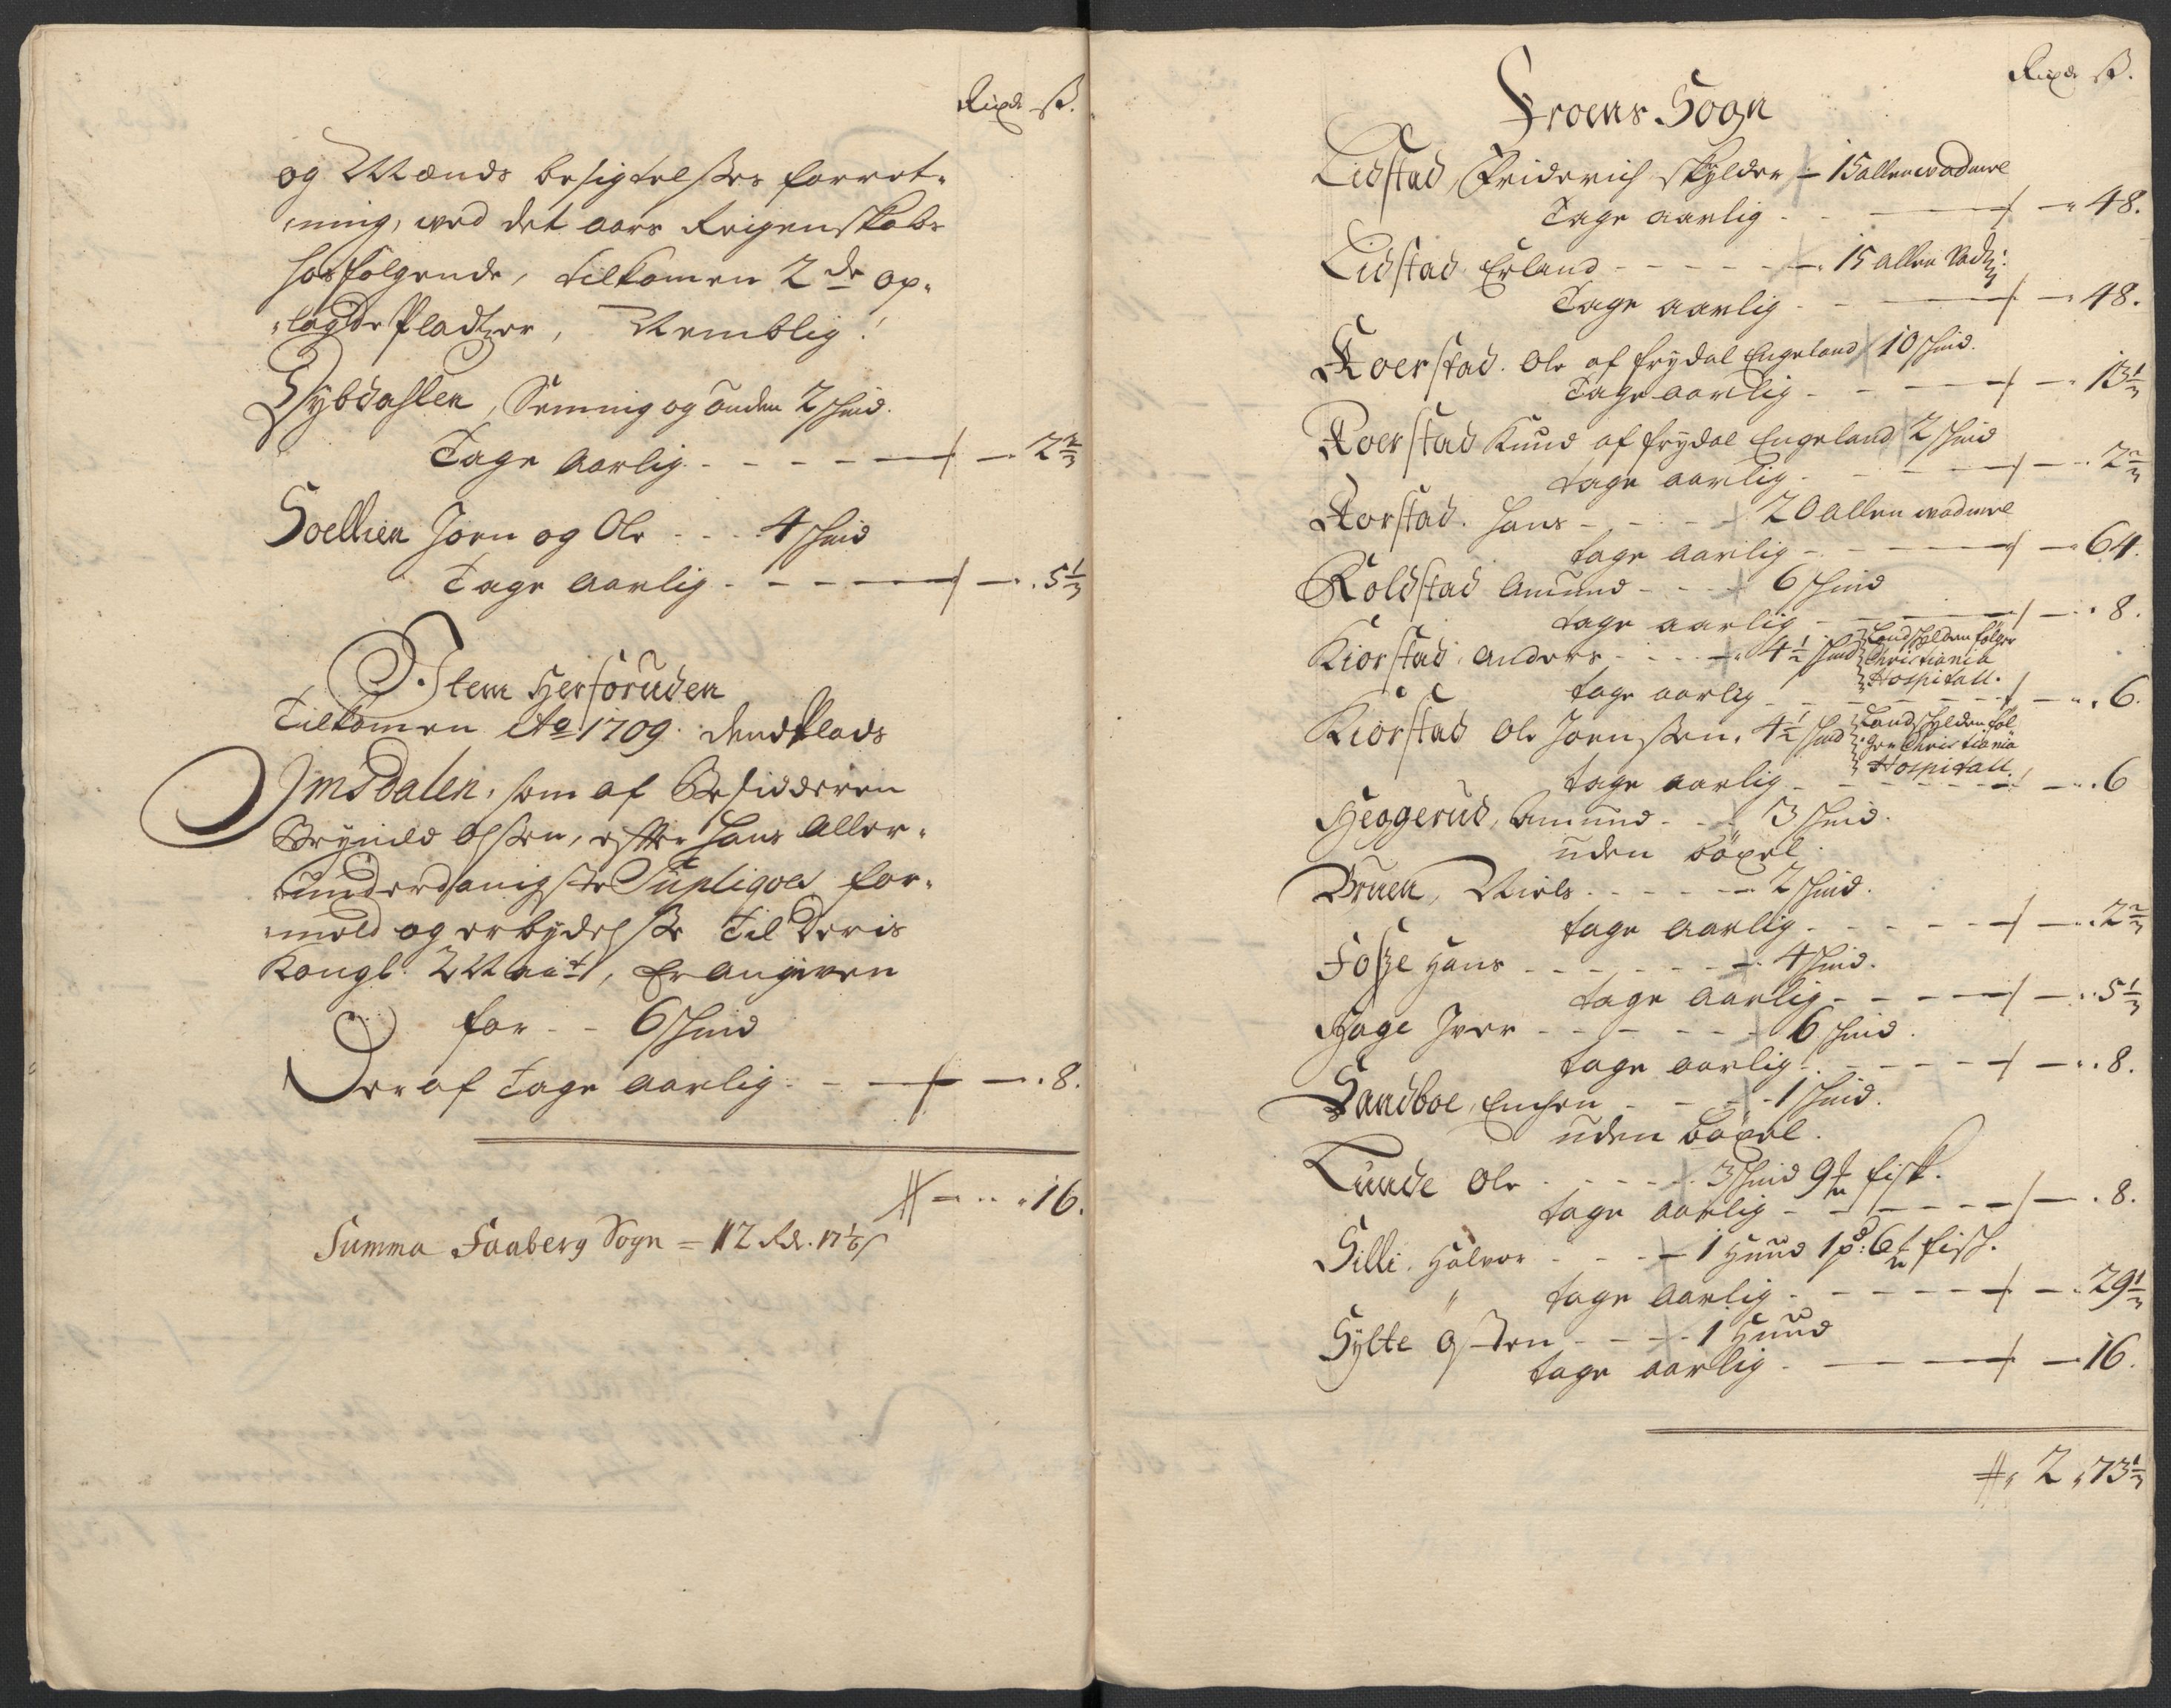 Rixdr ß.
og Mænds besigtelsses forret-
ning, ved det aars Reigenskab
hosfølgende, tilkomen 2de op-
lagde Pladtzer, Nemblig:
Dybdahlen, Semmig og Anden 2 skind.
Tage aarlig - - - - 2 2/3
Soellien Joen og Ole - - - 4 skind
Tage aarlig - - - - 5 1/3
Item Herforuden
Tilkomen Ao 1709. dend Plads
Imsdalen, som af Besidderen
Brynild Olssen, efter hans Aller-
underdanigste Supliqves for-
meld og erbydelsse til Deris
Kongl: Mait, Er angiven
for - - 6 skind
Deraf Tage aarlig - - - - 8.
# - - - 16.
Summa Faaberg Sogn = 12 Rdr. 17 1/6 ß
Rixdr ß.
Froens Sogn
Lidstad, Friderich skylder - 15 allen wadmel
Tage aarlig - - - - 48.
Lidstad Erland - - - - - 15 allen Vadm:
Tage aarlig - - - - 48.
Roerstad. Ole af frydal Engeland 10 skind.
Tage aarlig - - - - 13 1/3
Roerstad Knud af frydal Engeland 2 skind
tage aarlig - - - - 2 2/3
Rorstad. Hans - - - - 20 allen wadmel
tage aarlig - - - - 64.
Koldstad Amund - - - - 6 skind
tage aarlig - - - - 8.
Kiorstad, Anders - - - - 4 1/2 skind Landskylden følger
Christiania
Hospitall.
tage aarlig - - - - 6.
Kiorstad Ole Joenssen. 4 1/2 skind Landskylden føl
ger Christiania
Hospitall.
tage aarlig - - - - 6
Heggerud, Amund - - - 3 skind.
uden böxel.
Bruen, Niels - - - - - 2 skind.
tage aarlig - - - - 2 2/3
Fosse Hans - - - - - 4 skind.
tage aarlig - - - - 5 1/3
Hage Iver - - - - - - 6 skind.
tage aarlig - - - - 8.
Sandboe, Enchen - - - - 1 skind.
uden böxel.
Lunde Ole - - - - - 3 skind 9 ℔ fisk.
tage aarlig - - - - 8.
Silli. Halvor - - - - 1 Huud 1 pd: 6 ℔ fisk.
tage aarlig - - - - 29 1/3
Sylte Østen - - - - 1 Huud
tage aarlig - - - - 16.
#. 2. 73 1/3